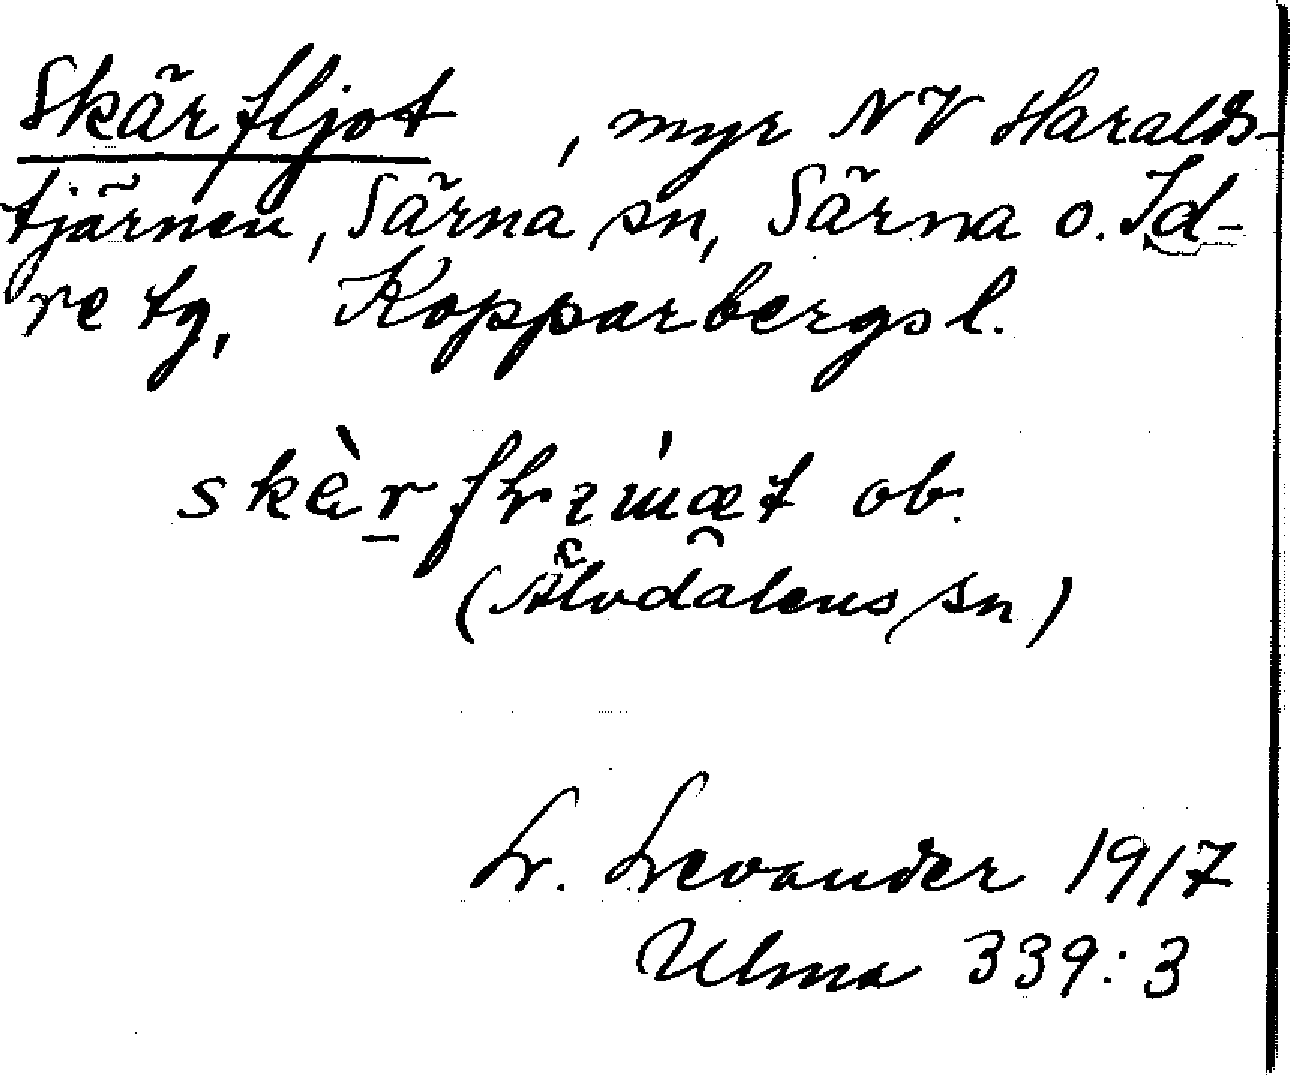 Skärfljot, myr NV Haralds-
tjärnen, Särna sn, Särna o. Id-
re tg, Kopparbergs l.
ob.
(Älvdalens sn)
L. Levander 1917
Ulma 339:3